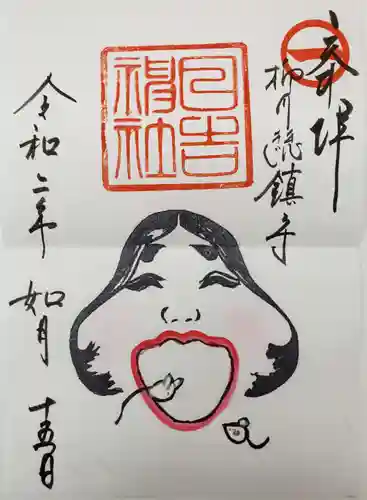 奉拝
柳川総鎮守
日吉神社
令和二年
如月
十五日